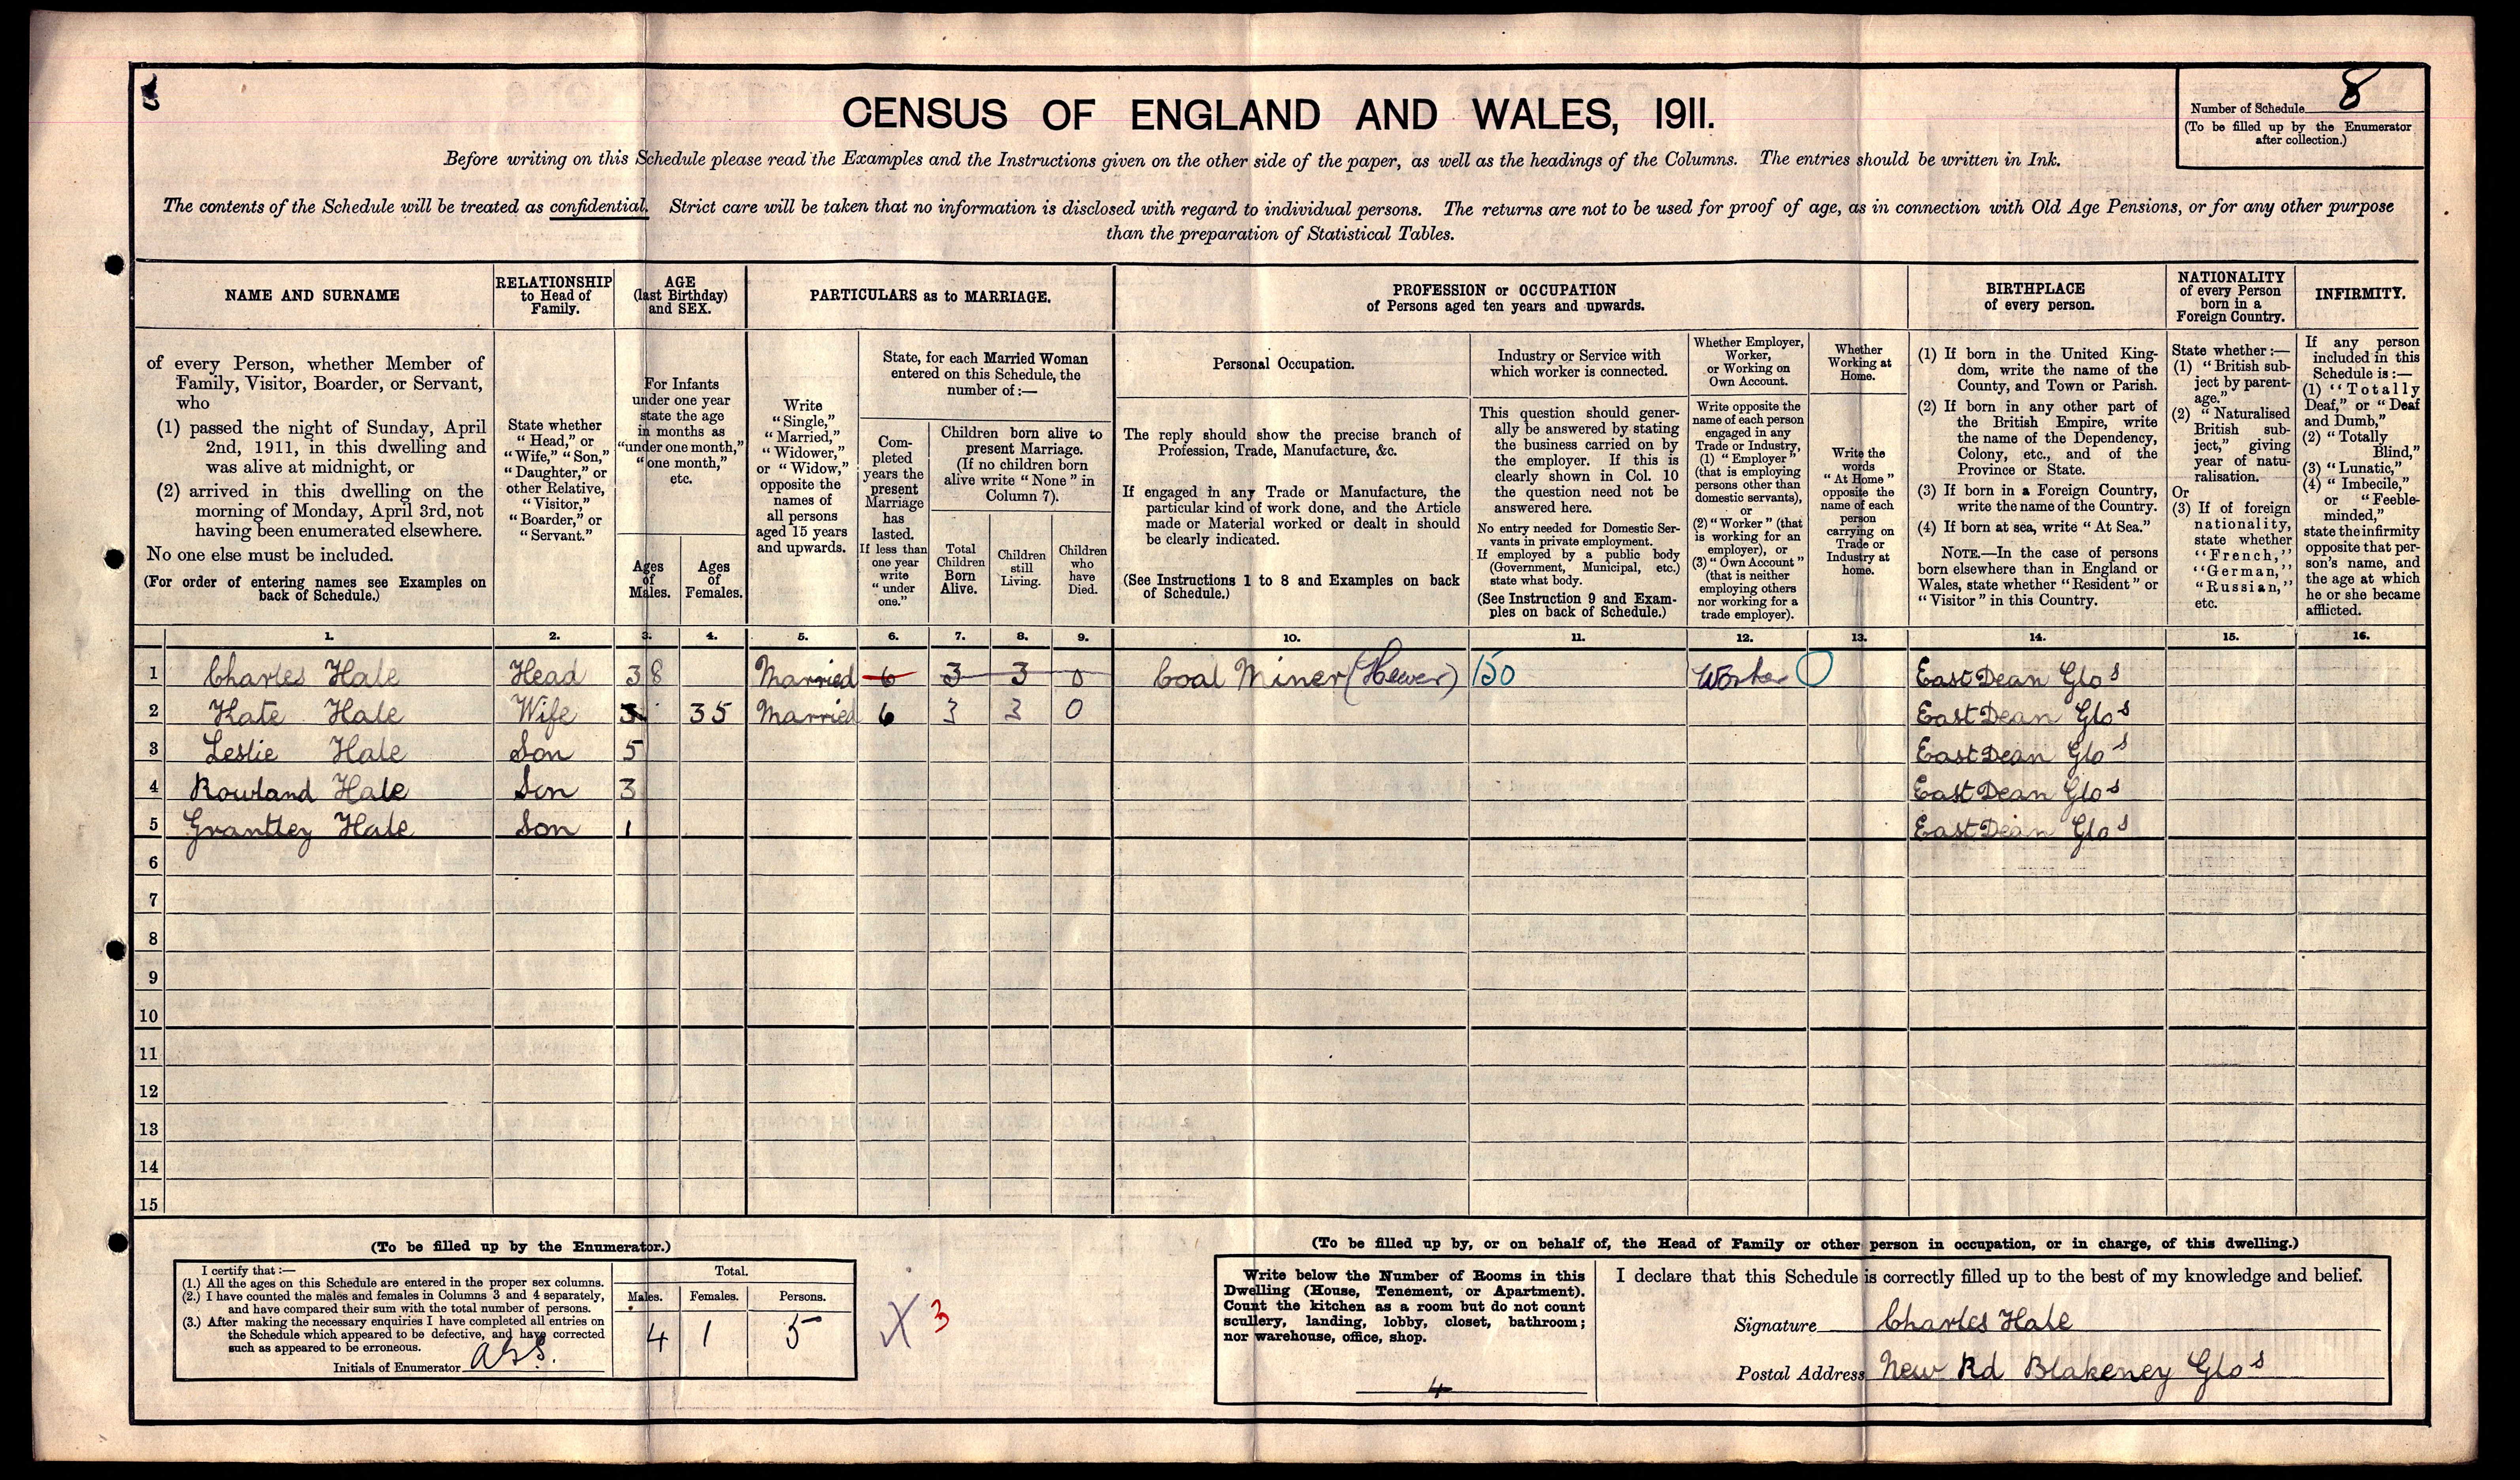 CENSUS OF ENGLAND AND WALES, 1911.
Number of Schedule 8
(To be filled up by the Enumerator
after collection.)
Before writing on this Schedule please read the Examples and the Instructions given on the other side of the paper, as well as the headings of the Columns. The entries should be written in Ink.
The contents of the Schedule will be treated as confidential. Strict care will be taken that no information is disclosed with regard to individual persons. The returns are not to be used for proof of age, as in connection with Old Age Pensions, or for any other purpose
than the preparation of Statistical Tables.
NAME AND SURNAME
of every Person, whether Member of
Family, Visitor, Boarder, or Servant,
who
(1) passed the night of Sunday, April
2nd, 1911, in this dwelling and
was alive at midnight, or
(2) arrived in this dwelling on the
morning of Monday, April 3rd, not
having been enumerated elsewhere.
No one else must be included.
(For order of entering names see Examples on
back of Schedule.)
RELATIONSHIP
to Head of
Family.
State whether
"Head," or
"Wife," "Son,"
"Daughter," or
other Relative,
"Visitor,"
"Boarder," or
"Servant."
AGE
(last Birthday)
and SEX.
For Infants
under one year
state the age
in months as
"under one month,"
"one month,"
etc.
Ages
of
Males.
Ages
of
Females.
PARTICULARS as to MARRIAGE.
Write
"Single,"
"Married,"
"Widower,"
or "Widow,"
opposite the
names of
all persons
aged 15 years
and upwards.
State, for each Married Woman
entered on this Schedule, the
number of:—
Com-
pleted
years the
present
Marriage
has
lasted.
If less than
one year
write
"under
one."
Children born alive to
present Marriage.
(If no children born
alive write "None" in
Column 7).
Total
Children
Born
Alive.
Children
still
Living.
Children
who
have
Died.
PROFESSION or OCCUPATION
of Persons aged ten years and upwards.
Personal Occupation.
The reply should show the precise branch of
Profession, Trade, Manufacture, &c.
If engaged in any Trade or Manufacture, the
particular kind of work done, and the Article
made or Material worked or dealt in should
be clearly indicated.
(See Instructions 1 to 8 and Examples on back
of Schedule.)
Industry or Service with
which worker is connected.
This question should gener-
ally be answered by stating
the business carried on by
the employer. If this is
clearly shown in Col. 10
the question need not be
answered here.
No entry needed for Domestic Ser-
vants in private employment.
If employed by a public body
(Government, Municipal, etc.)
state what body.
(See Instruction 9 and Exam-
ples on back of Schedule.)
Whether Employer,
Worker,
or Working on
Own Account.
Write opposite the
name of each person
engaged in any
Trade or Industry,
(1) "Employer"
(that is employing
persons other than
domestic servants),
or
(2) "Worker" (that
is working for an
employer), or
(3) "Own Account"
(that is neither
employing others
nor working for a
trade employer).
Whether
Working at
Home.
Write the
words
"At Home"
opposite the
name of each
person
carrying on
Trade or
Industry at
home.
BIRTHPLACE
of every person.
(1) If born in the United King-
dom, write the name of the
County, and Town or Parish.
(2) If born in any other part of
the British Empire, write
the name of the Dependency,
Colony, etc., and of the
Province or State.
(3) If born in a Foreign Country,
write the name of the Country.
(4) If born at sea, write "At Sea."
NOTE.—In the case of persons
born elsewhere than in England or
Wales, state whether "Resident" or
"Visitor" in this Country.
NATIONALITY
of every Person
born in a
Foreign Country.
State whether:—
(1) "British sub-
ject by parent-
age."
(2) "Naturalised
British sub-
ject," giving
year of natu-
ralisation.
Or
(3) If of foreign
nationality,
state whether
"French,"
"German,"
"Russian,"
etc.
INFIRMITY.
If any person
included in this
Schedule is:—
(1) "Totally
Deaf," or "Deaf
and Dumb,"
(2) "Totally
Blind,"
(3) "Lunatic,"
(4) "Imbecile,"
or "Feeble-
minded,"
state the infirmity
opposite that per-
son's name, and
the age at which
he or she became
afflicted.
1. 2. 3. 4. 5. 6. 7. 8. 9. 10. 11. 12. 13. 14. 15. 16.
1 Charles Hale Head 38 Married 6 3 3 0 Coal Miner (Hewer) 150 Worker O East Dean Glos
2 Kate Hale Wife 3 35 Married 6 3 3 0 East Dean Glos
3 Leslie Hale Son 5 East Dean Glos
4 Rowland Hale Son 3 East Dean Glos
5 Grantley Hale Son 1 East Dean Glos
6
7
8
9
10
11
12
13
14
15
(To be filled up by the Enumerator.)
I certify that:—
(1.) All the ages on this Schedule are entered in the proper sex columns.
(2.) I have counted the males and females in Columns 3 and 4 separately,
and have compared their sum with the total number of persons.
(3.) After making the necessary enquiries I have completed all entries on
the Schedule which appeared to be defective, and have corrected
such as appeared to be erroneous.
Initials of Enumerator
Total.
Males. Females. Persons.
4 1 5
X 3
(To be filled up by, or on behalf of, the Head of Family or other person in occupation, or in charge, of this dwelling.)
Write below the Number of Rooms in this
Dwelling (House, Tenement, or Apartment).
Count the kitchen as a room but do not count
scullery, landing, lobby, closet, bathroom;
nor warehouse, office, shop.
4
I declare that this Schedule is correctly filled up to the best of my knowledge and belief.
Signature Charles Hale
Postal Address New Rd Blakeney Glos